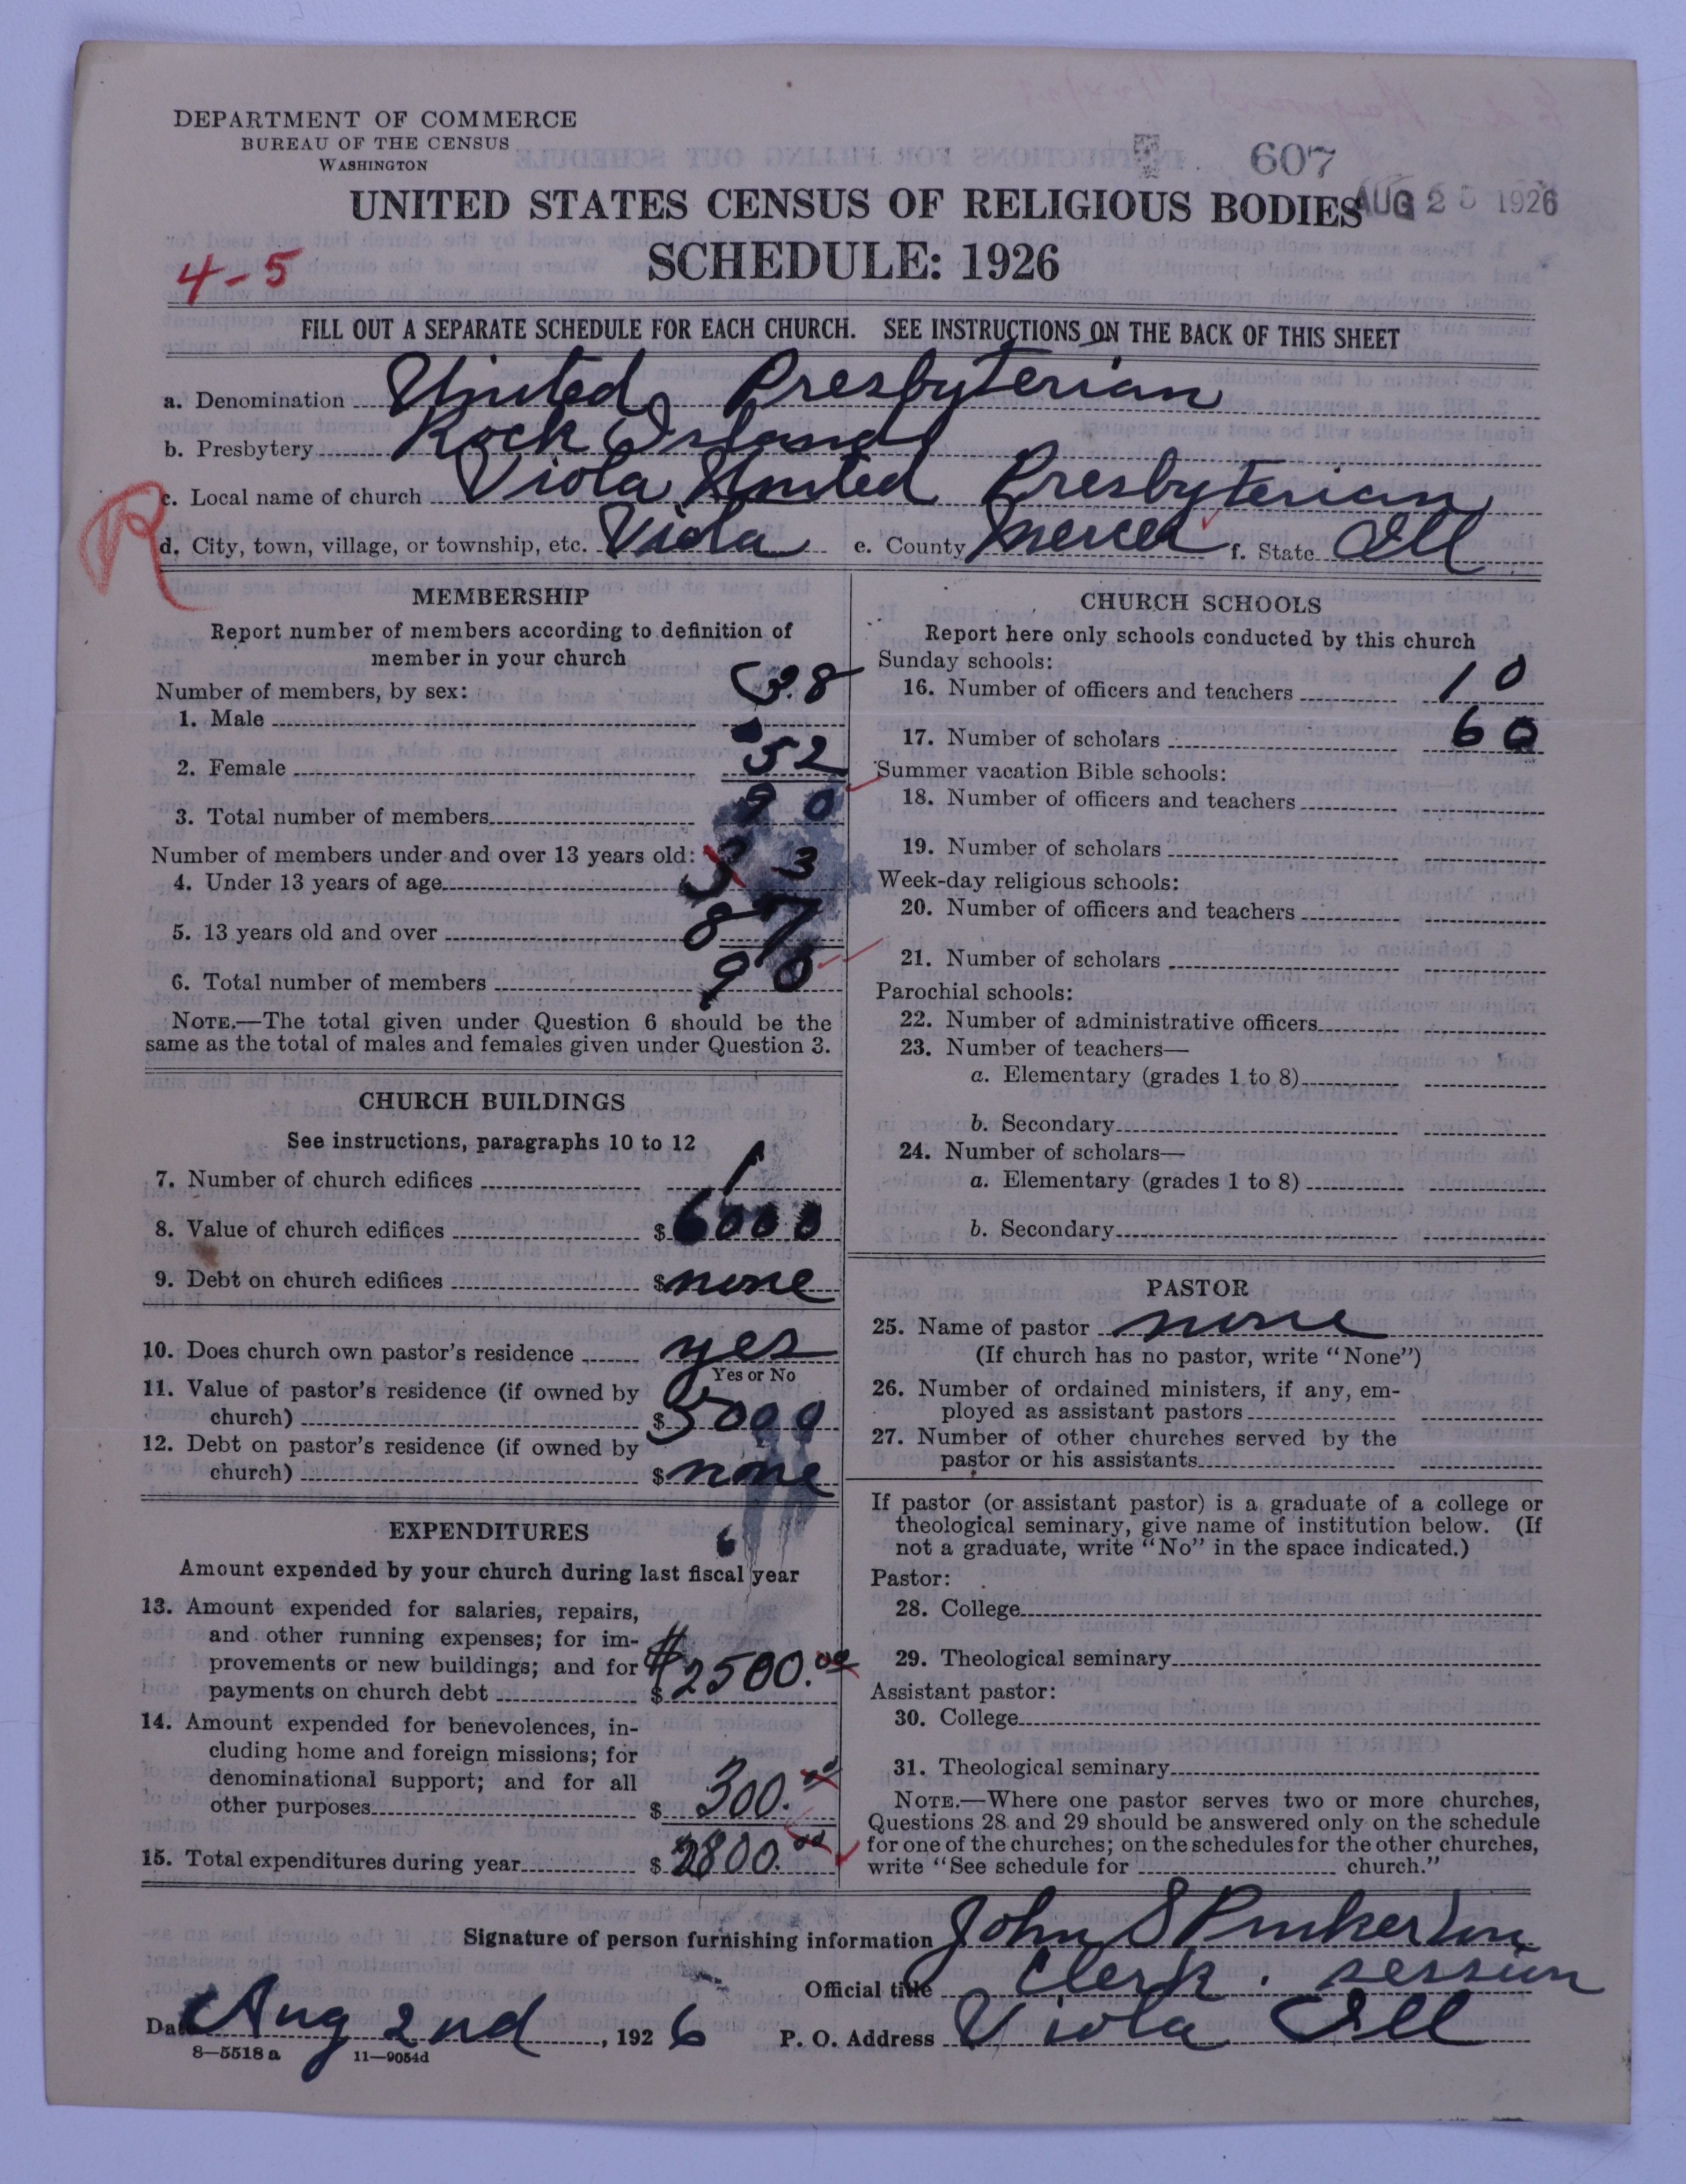 DEPARTMENT OF COMMERCE
BUREAU OF THE CENSUS
WASHINGTON
607
AUG 25 1926
UNITED STATES CENSUS OF RELIGIOUS BODIES
SCHEDULE: 1926
4-5
FILL OUT A SEPARATE SCHEDULE FOR EACH CHURCH. SEE INSTRUCTIONS ON THE BACK OF THIS SHEET
a. Denomination United Presbyterian
b. Presbytery Rock Island
c. Local name of church Viola United Presbyterian
R
d. City, town, village, or township, etc. Viola e. County Mercer f. State Ill
MEMBERSHIP
Report number of members according to definition of
member in your church
Number of members, by sex:
1. Male 38
2. Female 52
3. Total number of members 90
Number of members under and over 13 years old:
4. Under 13 years of age 3
5. 13 years old and over 87
6. Total number of members 90
NOTE.—The total given under Question 6 should be the
same as the total of males and females given under Question 3.
CHURCH BUILDINGS
See instructions, paragraphs 10 to 12
7. Number of church edifices 1
8. Value of church edifices $6000
9. Debt on church edifices $none
10. Does church own pastor's residence yes
Yes or No
11. Value of pastor's residence (if owned by
church) $3000
12. Debt on pastor's residence (if owned by
church) $none
EXPENDITURES
Amount expended by your church during last fiscal year
13. Amount expended for salaries, repairs,
and other running expenses; for im-
provements or new buildings; and for
payments on church debt $ $2500.00
14. Amount expended for benevolences, in-
cluding home and foreign missions; for
denominational support; and for all
other purposes $ 300.00
15. Total expenditures during year $ 2800.00
CHURCH SCHOOLS
Report here only schools conducted by this church
Sunday schools:
16. Number of officers and teachers 10
17. Number of scholars 60
Summer vacation Bible schools:
18. Number of officers and teachers
19. Number of scholars
Week-day religious schools:
20. Number of officers and teachers
21. Number of scholars
Parochial schools:
22. Number of administrative officers
23. Number of teachers—
a. Elementary (grades 1 to 8)
b. Secondary
24. Number of scholars—
a. Elementary (grades 1 to 8)
b. Secondary
PASTOR
25. Name of pastor none
(If church has no pastor, write "None")
26. Number of ordained ministers, if any, em-
ployed as assistant pastors
27. Number of other churches served by the
pastor or his assistants
If pastor (or assistant pastor) is a graduate of a college or
theological seminary, give name of institution below. (If
not a graduate, write "No" in the space indicated.)
Pastor:
28. College
29. Theological seminary
Assistant pastor:
30. College
31. Theological seminary
NOTE.—Where one pastor serves two or more churches,
Questions 28 and 29 should be answered only on the schedule
for one of the churches; on the schedules for the other churches,
write "See schedule for church."
Signature of person furnishing information John S Pinkerton
Official title Clerk. session
Date Aug 2nd, 1926 P. O. Address Viola Ill
8—5518 a 11—9054d